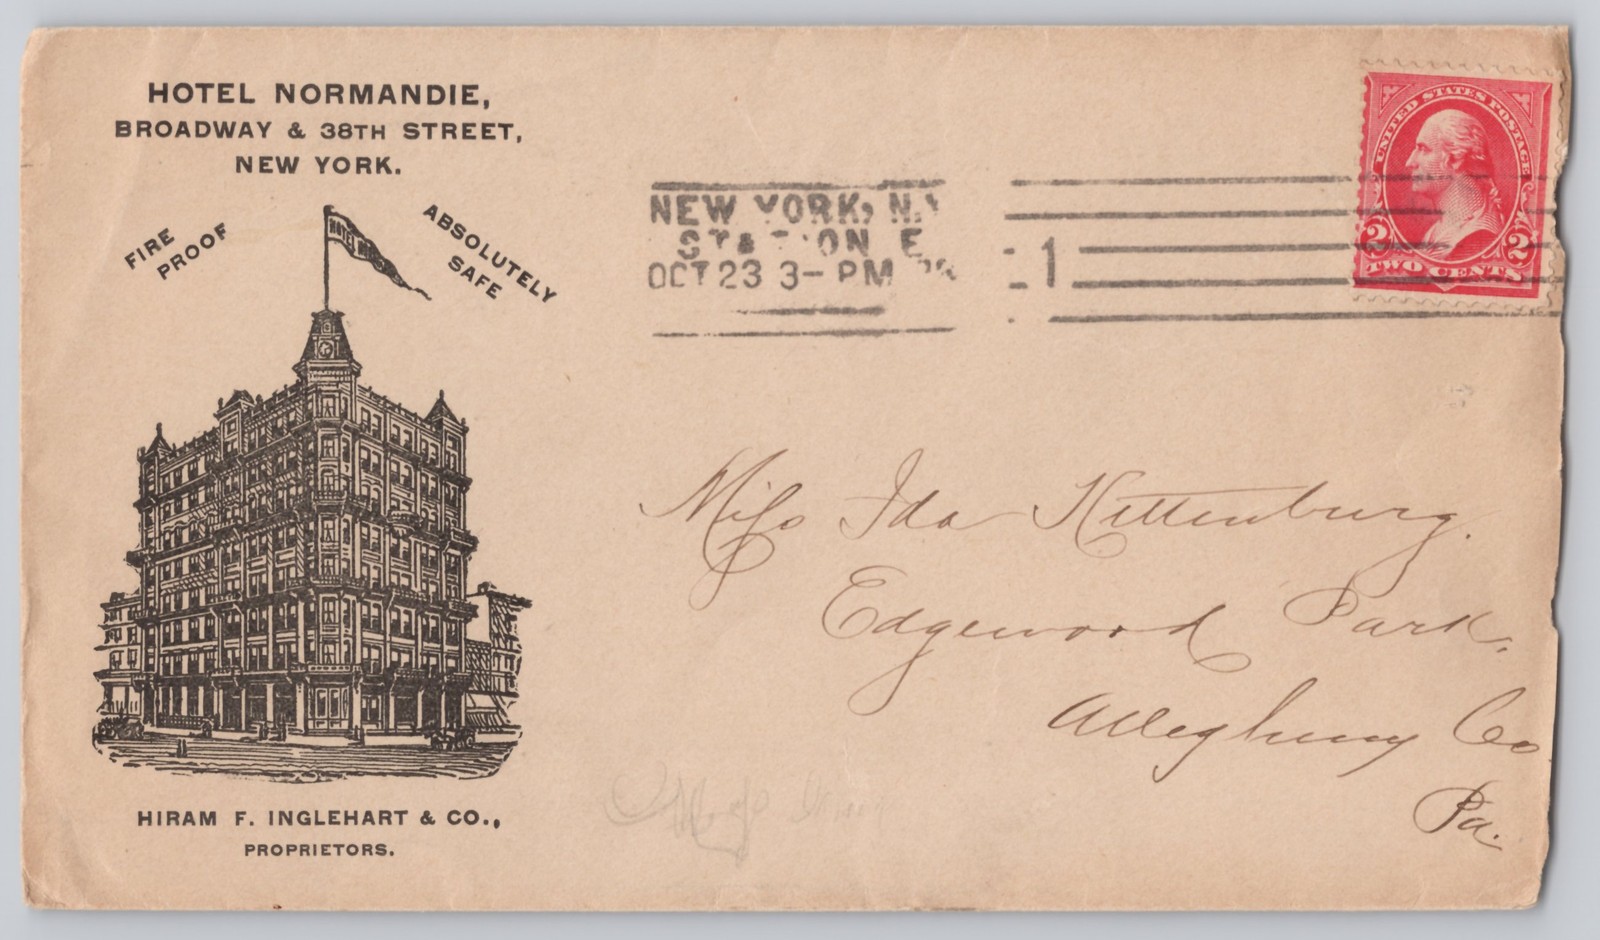 HOTEL NORMANDIE,
BROADWAY & 38TH STREET,
NEW YORK.
FIRE
PROOF
ABSOLUTELY
SAFE
HOTEL
HIRAM F. INGLEHART & CO.,
PROPRIETORS.
NEW YORK, N.Y
STATION E
OCT 23 3- PM
1
UNITED STATES POSTAGE
2 2
TWO CENTS
Miss Ida Kittenburg.
Edgewood Park,
Allegheny Co
Pa.